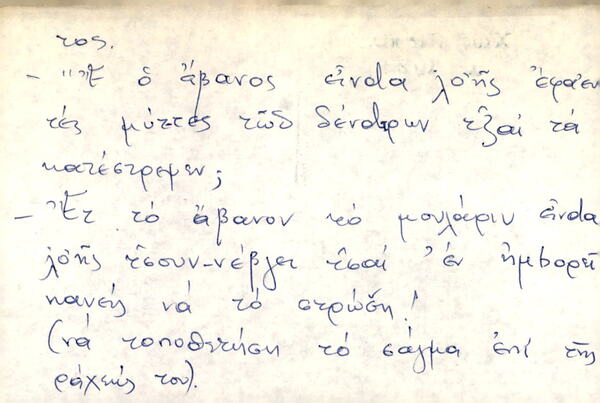 τος.
– "Ἒ ὁ ἄβανος εἶνdα λοῆς ἔφαεν
τές μύττες τῶδ δένdρων τζ̌αί τά
κατέστρεψεν;
– Ἒτ τό ἄβανον τό μουλάριν εἶνdα
λοῆς τσουν-νέβγει τσ̌αί 'ἐν ἠμbορεῖ
κανείς νά τό στρώσῃ!
(νά τοποθετήσῃ τό σάγμα ἐπί τῆς
ράχεώς του).